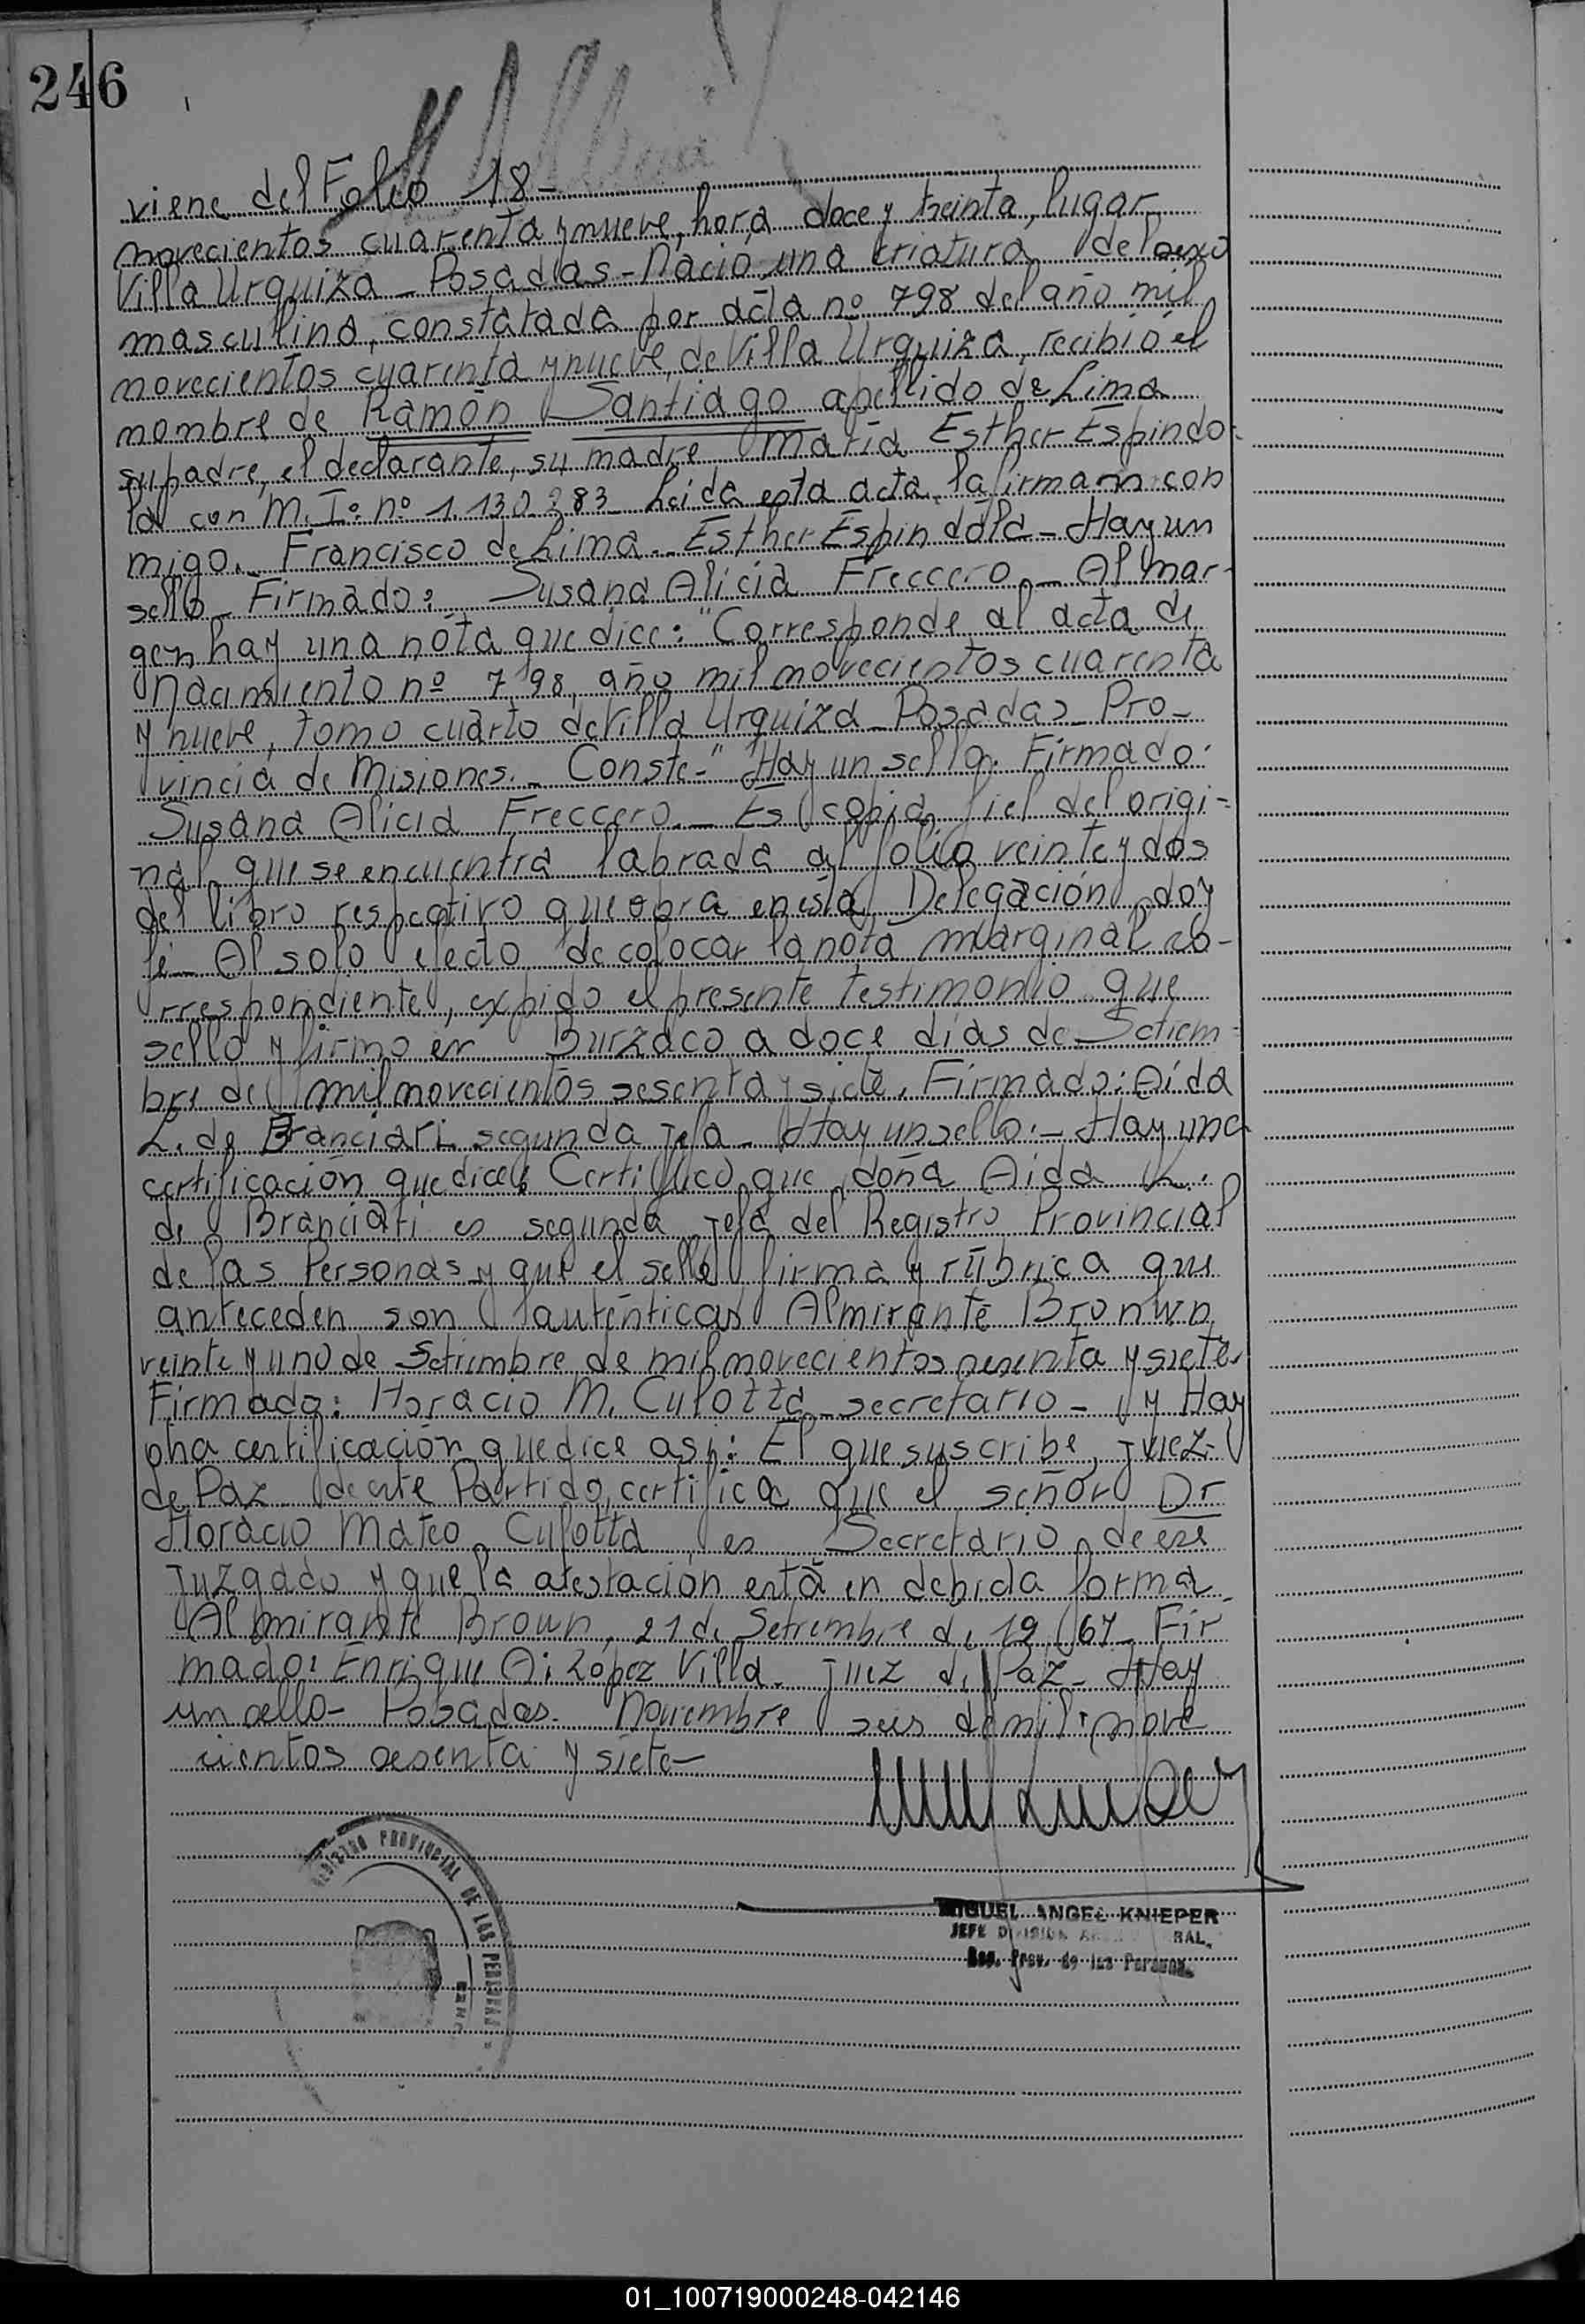 246
viene del Folio 18-
novecientos cuarenta y nueve, hora doce y treinta, lugar
Villa Urquiza - Posadas - Nació una criatura del sexo
masculino, constatada por acta nº 798 del año mil
novecientos cuarenta y nueve, de Villa Urquiza, recibió el
nombre de Ramón Santiago apellido de Lima
su padre, el declarante, su madre María Esther Espindo-
la con M.I. nº 1.130.283 Leida esta acta, la firman con
migo. Francisco de Lima - Esther Espindola - Hay un
sello - Firmado: Susana Alicia Freccero. - Al mar-
gen hay una nota que dice: "Corresponde al acta de
Nacimiento nº 798, año mil novecientos cuarenta
y nueve, tomo cuarto de Villa Urquiza Posadas - Pro-
vincia de Misiones. - Conste -" Hay un sello. Firmado:
Susana Alicia Freccero. - Es copia fiel del origi-
nal que se encuentra labrada al folio veinte y dos
del libro respectivo que obra en esta Delegación, doy
fé - Al solo efecto de colocar la nota marginal co-
rrespondiente, expido el presente testimonio que
sello y firmo en Burzaco a doce dias de Setiem-
bre de mil novecientos sesenta y siete. Firmado: Aida
L. de Branciari segunda jefa - Hay un sello. - Hay una
certificación que dice: Certifico que doña Aida L.
de Branciari es segunda jefa del Registro Provincial
de las Personas y que el sello firma y rúbrica que
anteceden son auténticas Almirante Bronwn
veinte y uno de Setiembre de mil novecientos sesenta y siete.
Firmado: Horacio M. Culotta secretario - y Hay
otra certificación que dice asi: El que suscribe, juez
de Paz de este Partido, certifica que el señor Dr
Horacio Mateo Culotta es Secretario de ese
Juzgado y que la atestación está en debida forma
Almirante Brown, 21 de Setiembre de 1967 - Fir-
mado: Enrique A. Lopez Villa. juez de Paz - Hay
un sello - Posadas. Noviembre seis de mil nove
cientos sesenta y siete -
REGISTRO PROVINCIAL DE LAS PERSONAS
MIGUEL ANGEL KNIEPER
JEFE DIVISION
Reg. Prov. de las Personas
01_100719000248-042146